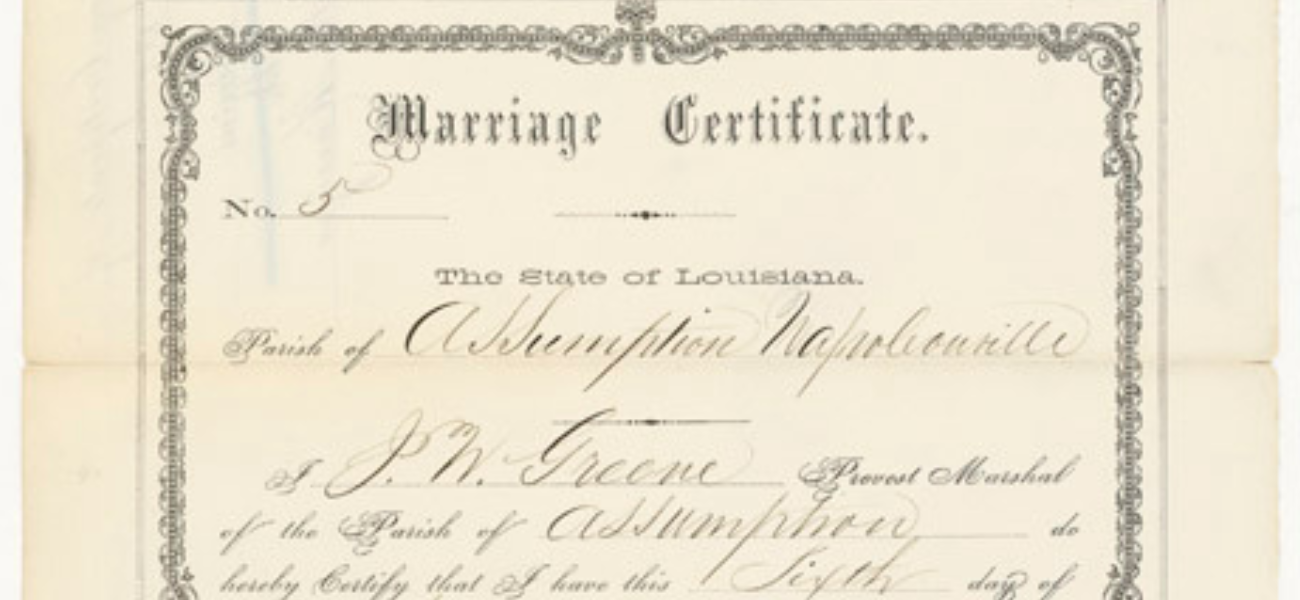 Marriage Certificate.
No. 5
The State of Louisiana.
Parish of Assumption Napoleonville
I J. W. Greene Provost Marshal
of the Parish of Assumption do
hereby Certify that I have this Sixth day of